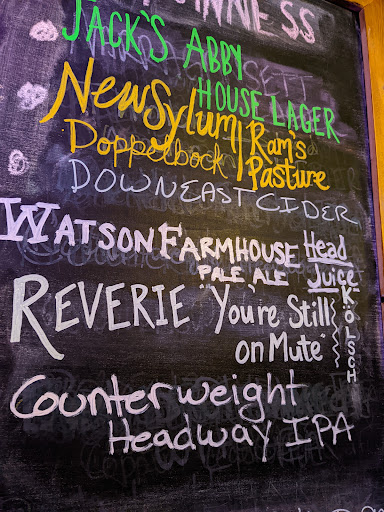 GUINNESS
JACK'S ABBY
HOUSE LAGER
NewSylum
Doppelbock
Ram's
Pasture
DOWNEAST CIDER
WATSON FARMHOUSE
PALE ALE
Head
Juice
REVERIE "You're Still
on Mute"
KÖLSCH
Counterweight
Headway IPA